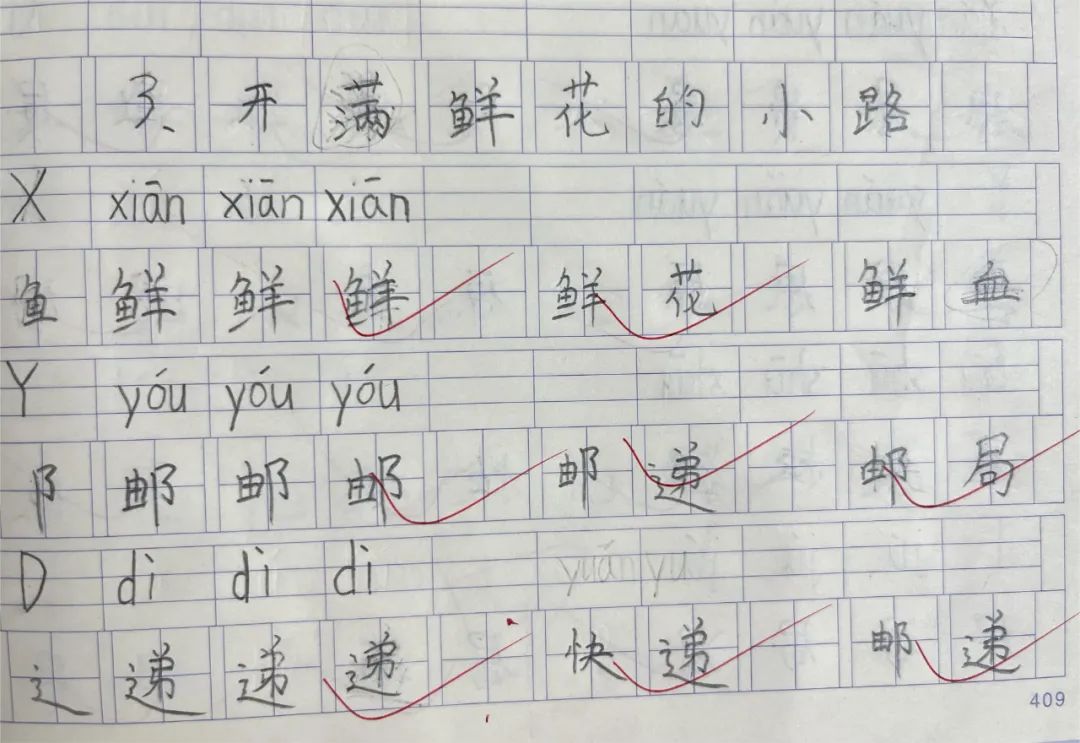 3、开满鲜花的小路
X xiān xiān xiān
鱼 鲜 鲜 鲜 鲜花 鲜血
Y yóu yóu yóu
阝 邮 邮 邮 邮递 邮局
D dì dì dì
辶 递 递 递 快递 邮递
409